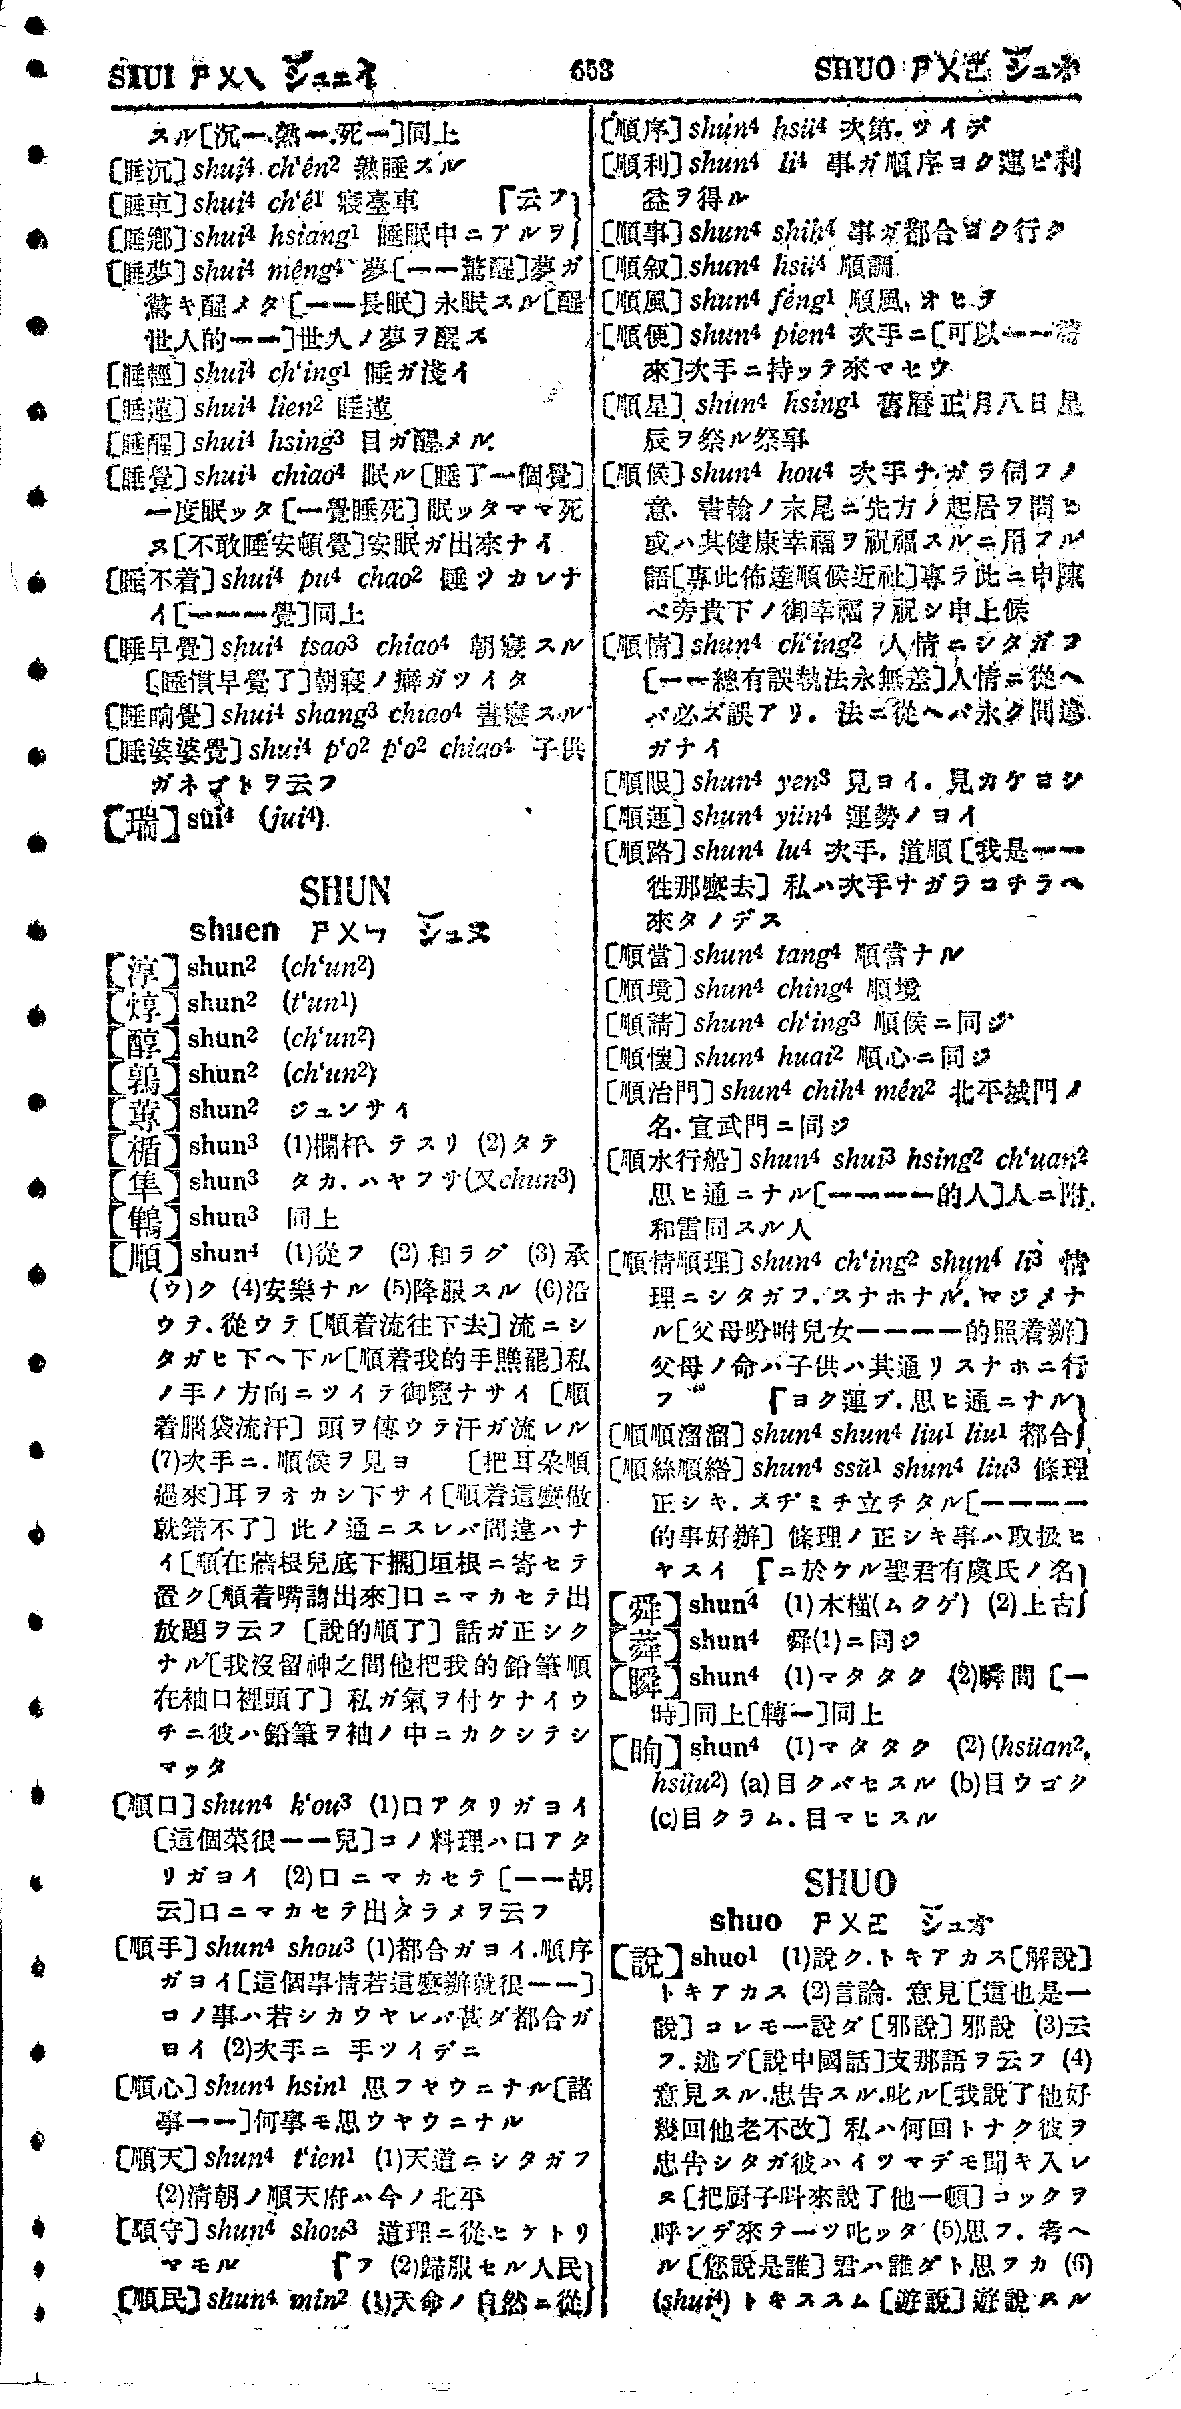 SHUI ㄕㄨㄟ シュエイ
653
SHUO ㄕㄨㄛ シュオ
スル[沉一.熟一.死一]同上
[睡沉] shui⁴ ch'ên² 熟睡スル
[睡車] shui⁴ ch'ê¹ 寢臺車 「云フ
[睡鄉] shui⁴ hsiang¹ 睡眠中ニアルヲ
[睡夢] shui⁴ mêng⁴ 夢[一一驚醒]夢ガ
驚キ醒メタ[一一長眠]永眠スル[醒
世人的一一]世人ノ夢ヲ醒ス
[睡輕] shui⁴ ch'ing¹ 睡ガ淺イ
[睡蓮] shui⁴ lien² 睡蓮
[睡醒] shui⁴ hsing³ 目ガ醒メル
[睡覺] shui⁴ chiao⁴ 眠ル[睡了一個覺]
一度眠ッタ[一覺睡死]眠ッタママ死
ヌ[不敢睡安頓覺]安眠ガ出來ナイ
[睡不着] shui⁴ pu⁴ chao² 睡ツカレナ
イ[一一一覺]同上
[睡早覺] shui⁴ tsao³ chiao⁴ 朝寢スル
[睡慣早覺了]朝寢ノ癖ガツイタ
[睡晌覺] shui⁴ shang³ chiao⁴ 晝寢スル
[睡婆婆覺] shui⁴ p'o² p'o² chiao⁴ 子供
ガネゴトヲ云フ
【瑞】 sui⁴ (jui⁴)
SHUN
shuen ㄕㄨㄣ シュヌ
【淳】 shun² (ch'un²)
【焞】 shun² (t'un¹)
【醇】 shun² (ch'un²)
【鶉】 shun² (ch'un²)
【蓴】 shun² ジュンサイ
【楯】 shun³ (1)欄杆、テスリ (2)タテ
【隼】 shun³ タカ.ハヤフサ(又chun³)
【鶽】 shun³ 同上
【順】 shun⁴ (1)從フ (2)和ラグ (3)承
(ウ)ク (4)安樂ナル (5)降服スル (6)沿
ウテ.從ウテ[順着流往下去]流ニシ
タガヒ下ヘ下ル[順着我的手瞧罷]私
ノ手ノ方向ニツイテ御覽ナサイ[順
着腦袋流汗]頭ヲ傳ウテ汗ガ流レル
(7)次手ニ.順候ヲ見ヨ [把耳朵順
過來]耳ヲオカシ下サイ[順着這麼做
就錯不了]此ノ通ニスレバ間違ハナ
イ[順在牆根兒底下擱]垣根ニ寄セテ
置ク[順着嘴謅出來]口ニマカセテ出
放題ヲ云フ[說的順了]話ガ正シク
ナル[我沒留神之間他把我的鉛筆順
在袖口裡頭了]私ガ氣ヲ付ケナイウ
チニ彼ハ鉛筆ヲ袖ノ中ニカクシテシ
マッタ
[順口] shun⁴ k'ou³ (1)口アタリガヨイ
[這個菜很一一兒]コノ料理ハ口アタ
リガヨイ (2)口ニマカセテ[一一胡
云]口ニマカセテ出タラメヲ云フ
[順手] shun⁴ shou³ (1)都合ガヨイ.順序
ガヨイ[這個事情若這麼辦就很一一]
コノ事ハ若シカウヤレバ甚ダ都合ガ
ヨイ (2)次手ニ 手ツイデニ
[順心] shun⁴ hsin¹ 思フヤウニナル[諸
事一一]何事モ思ウヤウニナル
[順天] shun⁴ t'ien¹ (1)天道ニシタガフ
(2)清朝ノ順天府ハ今ノ北平
[順守] shun⁴ shou³ 道理ニ從ヒケトリ
マモル 「フ (2)歸服セル人民
[順民] shun⁴ min² (1)天命ノ自然ニ從
[順序] shun⁴ hsü⁴ 次第.ツイデ
[順利] shun⁴ li⁴ 事ガ順序ヨク運ビ利
益ヲ得ル
[順事] shun⁴ shih⁴ 事ガ都合ヨク行ク
[順叙] shun⁴ hsü⁴ 順調
[順風] shun⁴ fêng¹ 順風.オヒテ
[順便] shun⁴ pien⁴ 次手ニ[可以一一帶
來]次手ニ持ッテ來マセウ
[順星] shun⁴ hsing¹ 舊曆正月八日星
辰ヲ祭ル祭事
[順候] shun⁴ hou⁴ 次手ナガラ伺フノ
意.書翰ノ末尾ニ先方ノ起居ヲ問ヒ
或ハ其健康幸福ヲ祝福スルニ用フル
語[專此佈達順候近祉]專ラ此ニ申陳
ベ旁貴下ノ御幸福ヲ祝シ申上候
[順情] shun⁴ ch'ing² 人情ニシタガフ
[一一總有誤執法永無差]人情ニ從ヘ
バ必ズ誤アリ.法ニ從ヘバ永ク間違
ガナイ
[順眼] shun⁴ yen³ 見ヨイ.見カケヨシ
[順運] shun⁴ yün⁴ 運勢ノヨイ
[順路] shun⁴ lu⁴ 次手.道順[我是一一
徃那麼去]私ハ次手ナガラコチラヘ
來タノデス
[順當] shun⁴ tang⁴ 順當ナル
[順境] shun⁴ ching⁴ 順境
[順請] shun⁴ ch'ing³ 順候ニ同ジ
[順懷] shun⁴ huai² 順心ニ同ジ
[順治門] shun⁴ chih⁴ mên² 北平城門ノ
名.宣武門ニ同ジ
[順水行船] shun⁴ shui³ hsing² ch'uan²
思ヒ通ニナル[一一一一的人]人ニ附
和雷同スル人
[順情順理] shun⁴ ch'ing² shun⁴ li³ 情
理ニシタガフ.スナホナル.マジメナ
ル[父母吩咐兒女一一一一的照着辦]
父母ノ命バ子供ハ其通リスナホニ行
フ 「ヨク運ブ.思ヒ通ニナル
[順順溜溜] shun⁴ shun⁴ liu¹ liu¹ 都合
[順絲順綹] shun⁴ ssŭ¹ shun⁴ liu³ 條理
正シキ.スヂミチ立チタル[一一一一
的事好辦]條理ノ正シキ事ハ取扱ヒ
ヤスイ 「ニ於ケル聖君有虞氏ノ名
【舜】 shun⁴ (1)木槿(ムクゲ) (2)上古
【蕣】 shun⁴ 舜(1)ニ同ジ
【瞬】 shun⁴ (1)マタタク (2)瞬間[一
時]同上[轉一]同上
【眴】 shun⁴ (1)マタタク (2)(hsüan²,
hsüu²) (a)目クバセスル (b)目ウゴク
(c)目クラム.目マヒスル
SHUO
shuo ㄕㄨㄛ シュオ
【說】 shuo¹ (1)說ク.トキアカス[解說]
トキアカス (2)言論.意見[這也是一
說]コレモ一說ダ[邪說]邪說 (3)云
フ.述ブ[說中國話]支那語ヲ云フ (4)
意見スル.忠告スル.叱ル[我說了他好
幾回他老不改]私ハ何回トナク彼ヲ
忠告シタガ彼ハイツマデモ聞キ入レ
ヌ[把厨子呌來說了他一頓]コックヲ
呼ンデ來テ一ツ叱ッタ (5)思フ.考ヘ
ル[您說是誰]君ハ誰ダト思フカ (6)
(shui⁴) トキススム[遊說]遊說スル